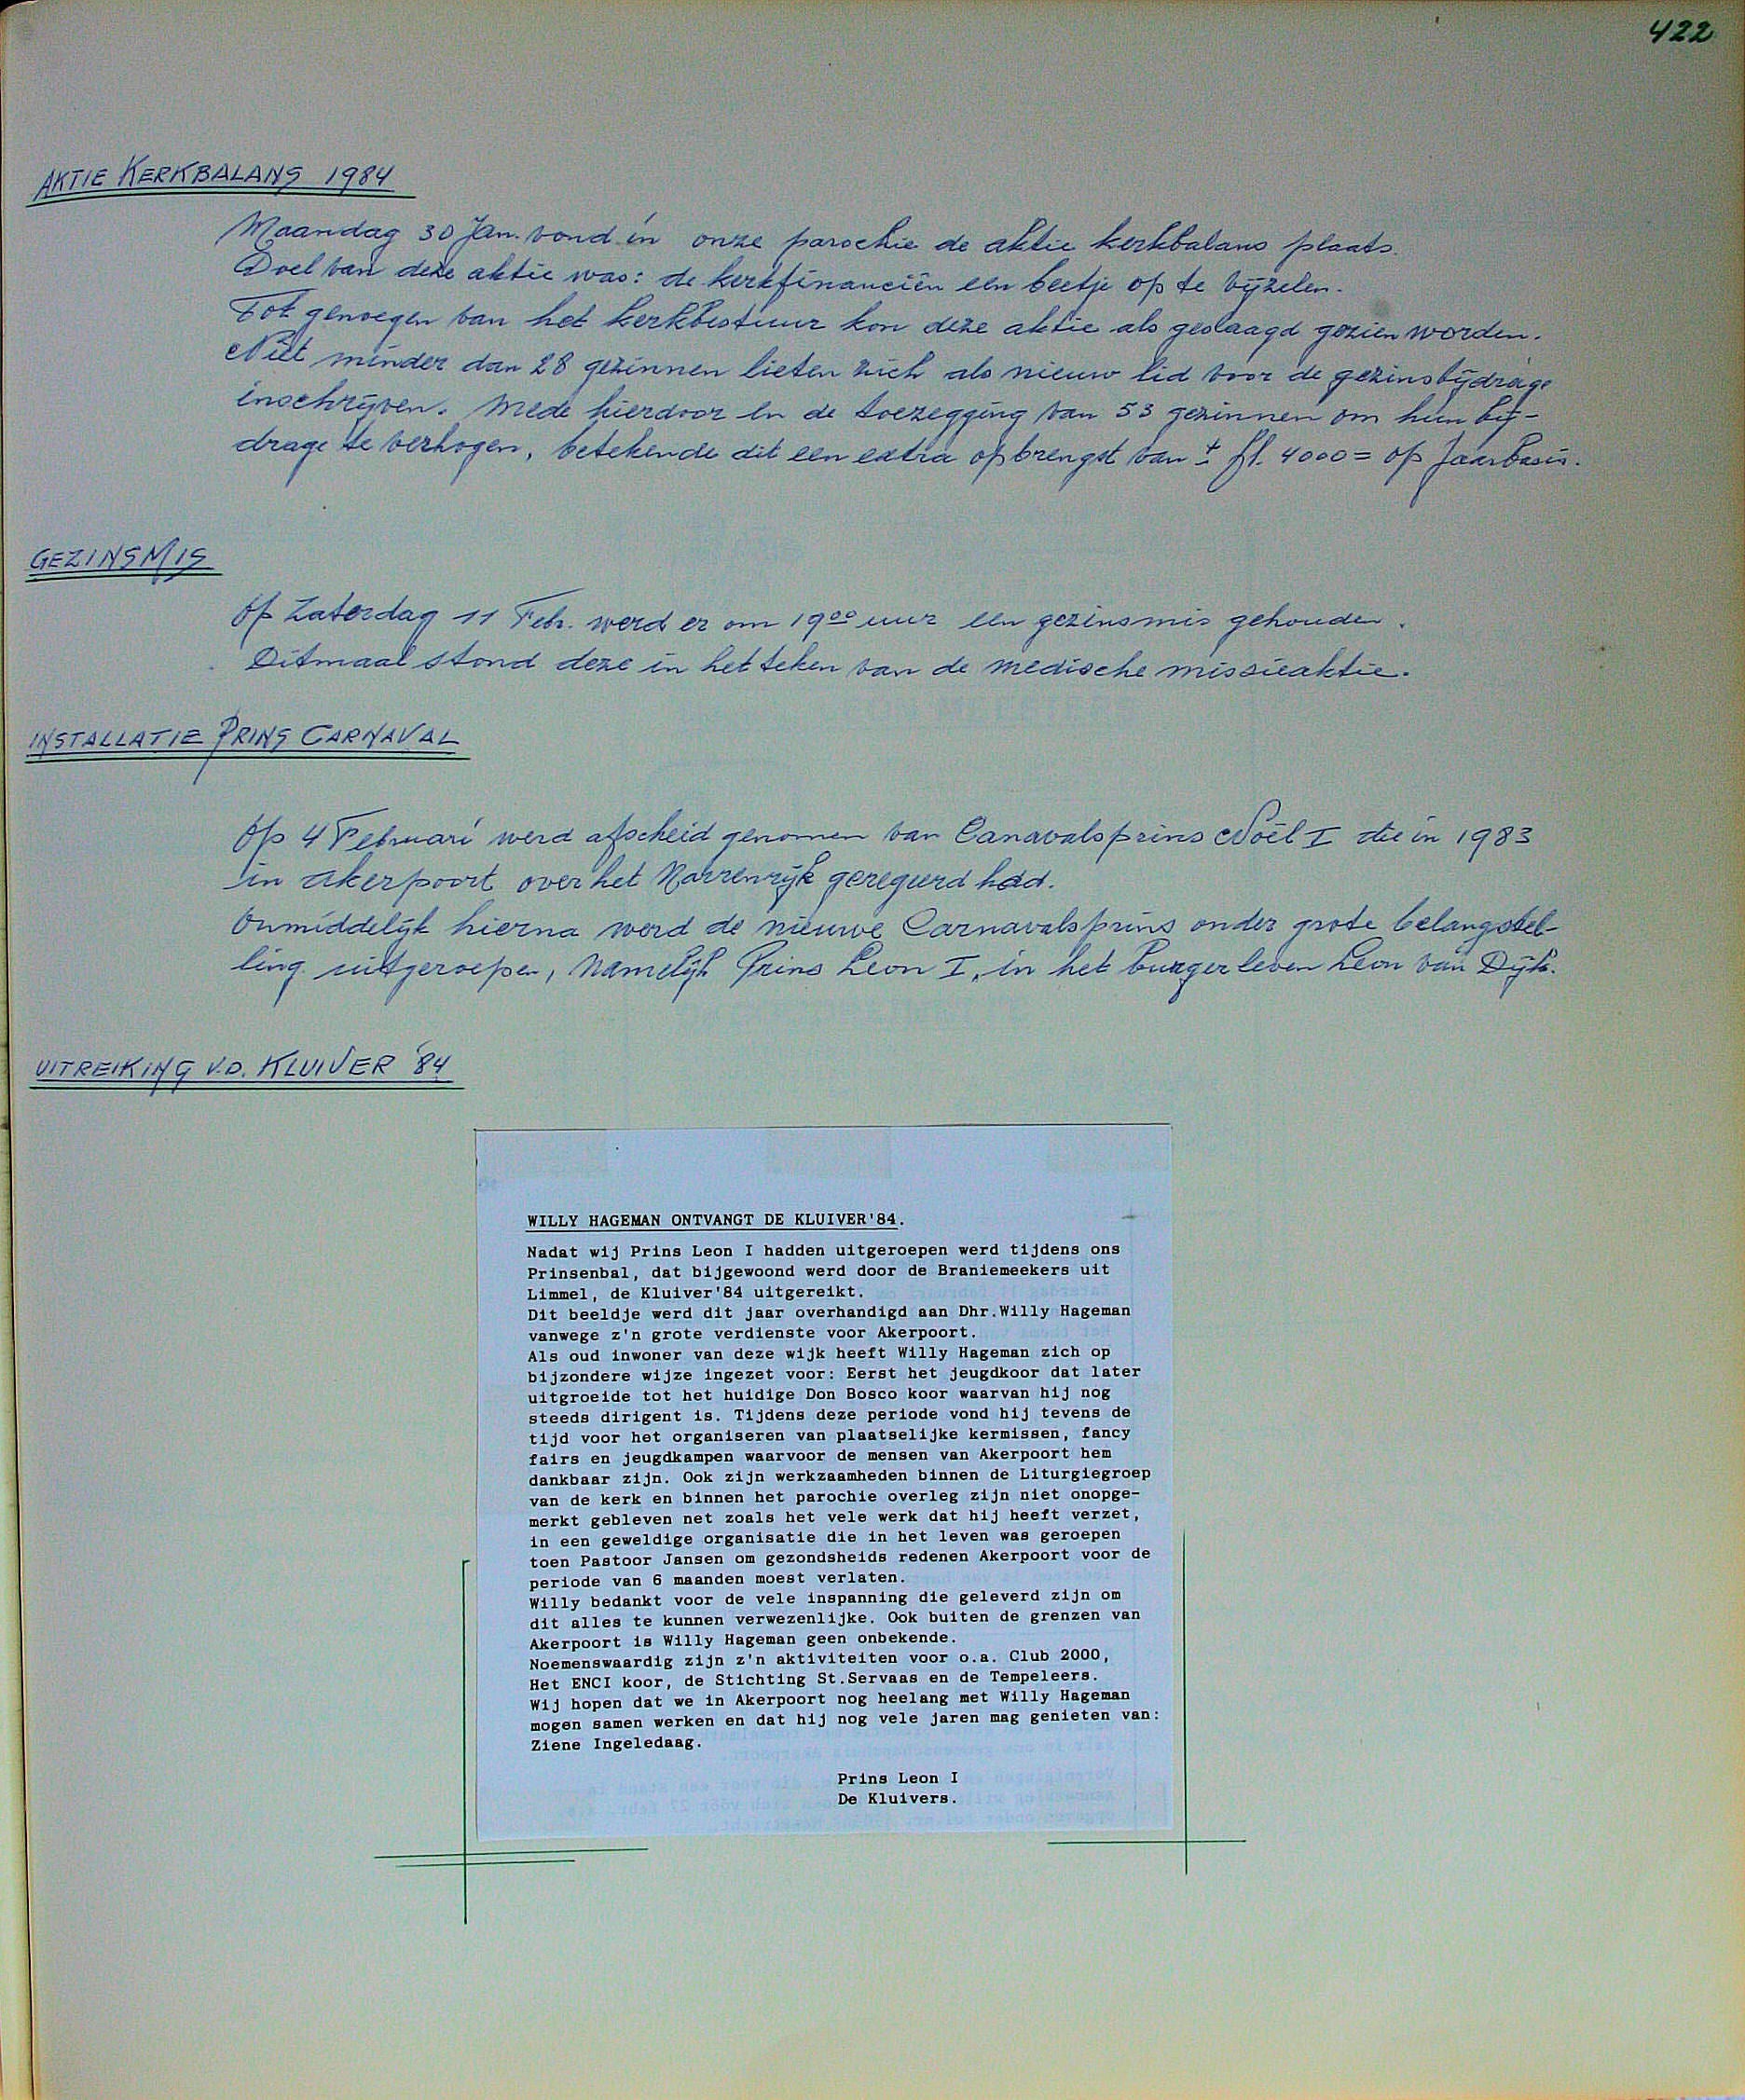 422
AKTIE KERKBALANS 1984
Maandag 30 Jan. vond in onze parochie de aktie kerkbalans plaats.
Doel van deze aktie was: de kerkfinanciën een beetje op te vijzelen.
Tot genoegen van het kerkbestuur kon deze aktie als geslaagd gezien worden.
Niet minder dan 28 gezinnen lieten zich als nieuw lid voor de gezinsbijdrage
inschrijven. Mede hierdoor en de toezegging van 53 gezinnen om hun bij-
drage te verhogen, betekende dit een extra opbrengst van ± fl. 4000= op Jaarbasis.
GEZINSMIS
Op Zaterdag 11 Febr. werd er om 19⁰⁰ uur een gezinsmis gehouden.
Ditmaal stond deze in het teken van de medische missieaktie.
INSTALLATIE PRINS CARNAVAL
Op 4 Februari werd afscheid genomen van Canavalsprins Noël I die in 1983
in Akerpoort over het Narrenrijk geregeerd had.
Onmiddelijk hierna werd de nieuwe Carnavalsprins onder grote belangstel-
ling uitgeroepen, Namelijk Prins Leon I, in het burgerleven Leon van Dijk.
UITREIKING V.D. KLUIVER '84
WILLY HAGEMAN ONTVANGT DE KLUIVER'84.
Nadat wij Prins Leon I hadden uitgeroepen werd tijdens ons
Prinsenbal, dat bijgewoond werd door de Braniemeekers uit
Limmel, de Kluiver'84 uitgereikt.
Dit beeldje werd dit jaar overhandigd aan Dhr.Willy Hageman
vanwege z'n grote verdienste voor Akerpoort.
Als oud inwoner van deze wijk heeft Willy Hageman zich op
bijzondere wijze ingezet voor: Eerst het jeugdkoor dat later
uitgroeide tot het huidige Don Bosco koor waarvan hij nog
steeds dirigent is. Tijdens deze periode vond hij tevens de
tijd voor het organiseren van plaatselijke kermissen, fancy
fairs en jeugdkampen waarvoor de mensen van Akerpoort hem
dankbaar zijn. Ook zijn werkzaamheden binnen de Liturgiegroep
van de kerk en binnen het parochie overleg zijn niet onopge-
merkt gebleven net zoals het vele werk dat hij heeft verzet,
in een geweldige organisatie die in het leven was geroepen
toen Pastoor Jansen om gezondsheids redenen Akerpoort voor de
periode van 6 maanden moest verlaten.
Willy bedankt voor de vele inspanning die geleverd zijn om
dit alles te kunnen verwezenlijke. Ook buiten de grenzen van
Akerpoort is Willy Hageman geen onbekende.
Noemenswaardig zijn z'n aktiviteiten voor o.a. Club 2000,
Het ENCI koor, de Stichting St.Servaas en de Tempeleers.
Wij hopen dat we in Akerpoort nog heelang met Willy Hageman
mogen samen werken en dat hij nog vele jaren mag genieten van:
Ziene Ingeledaag.
Prins Leon I
De Kluivers.